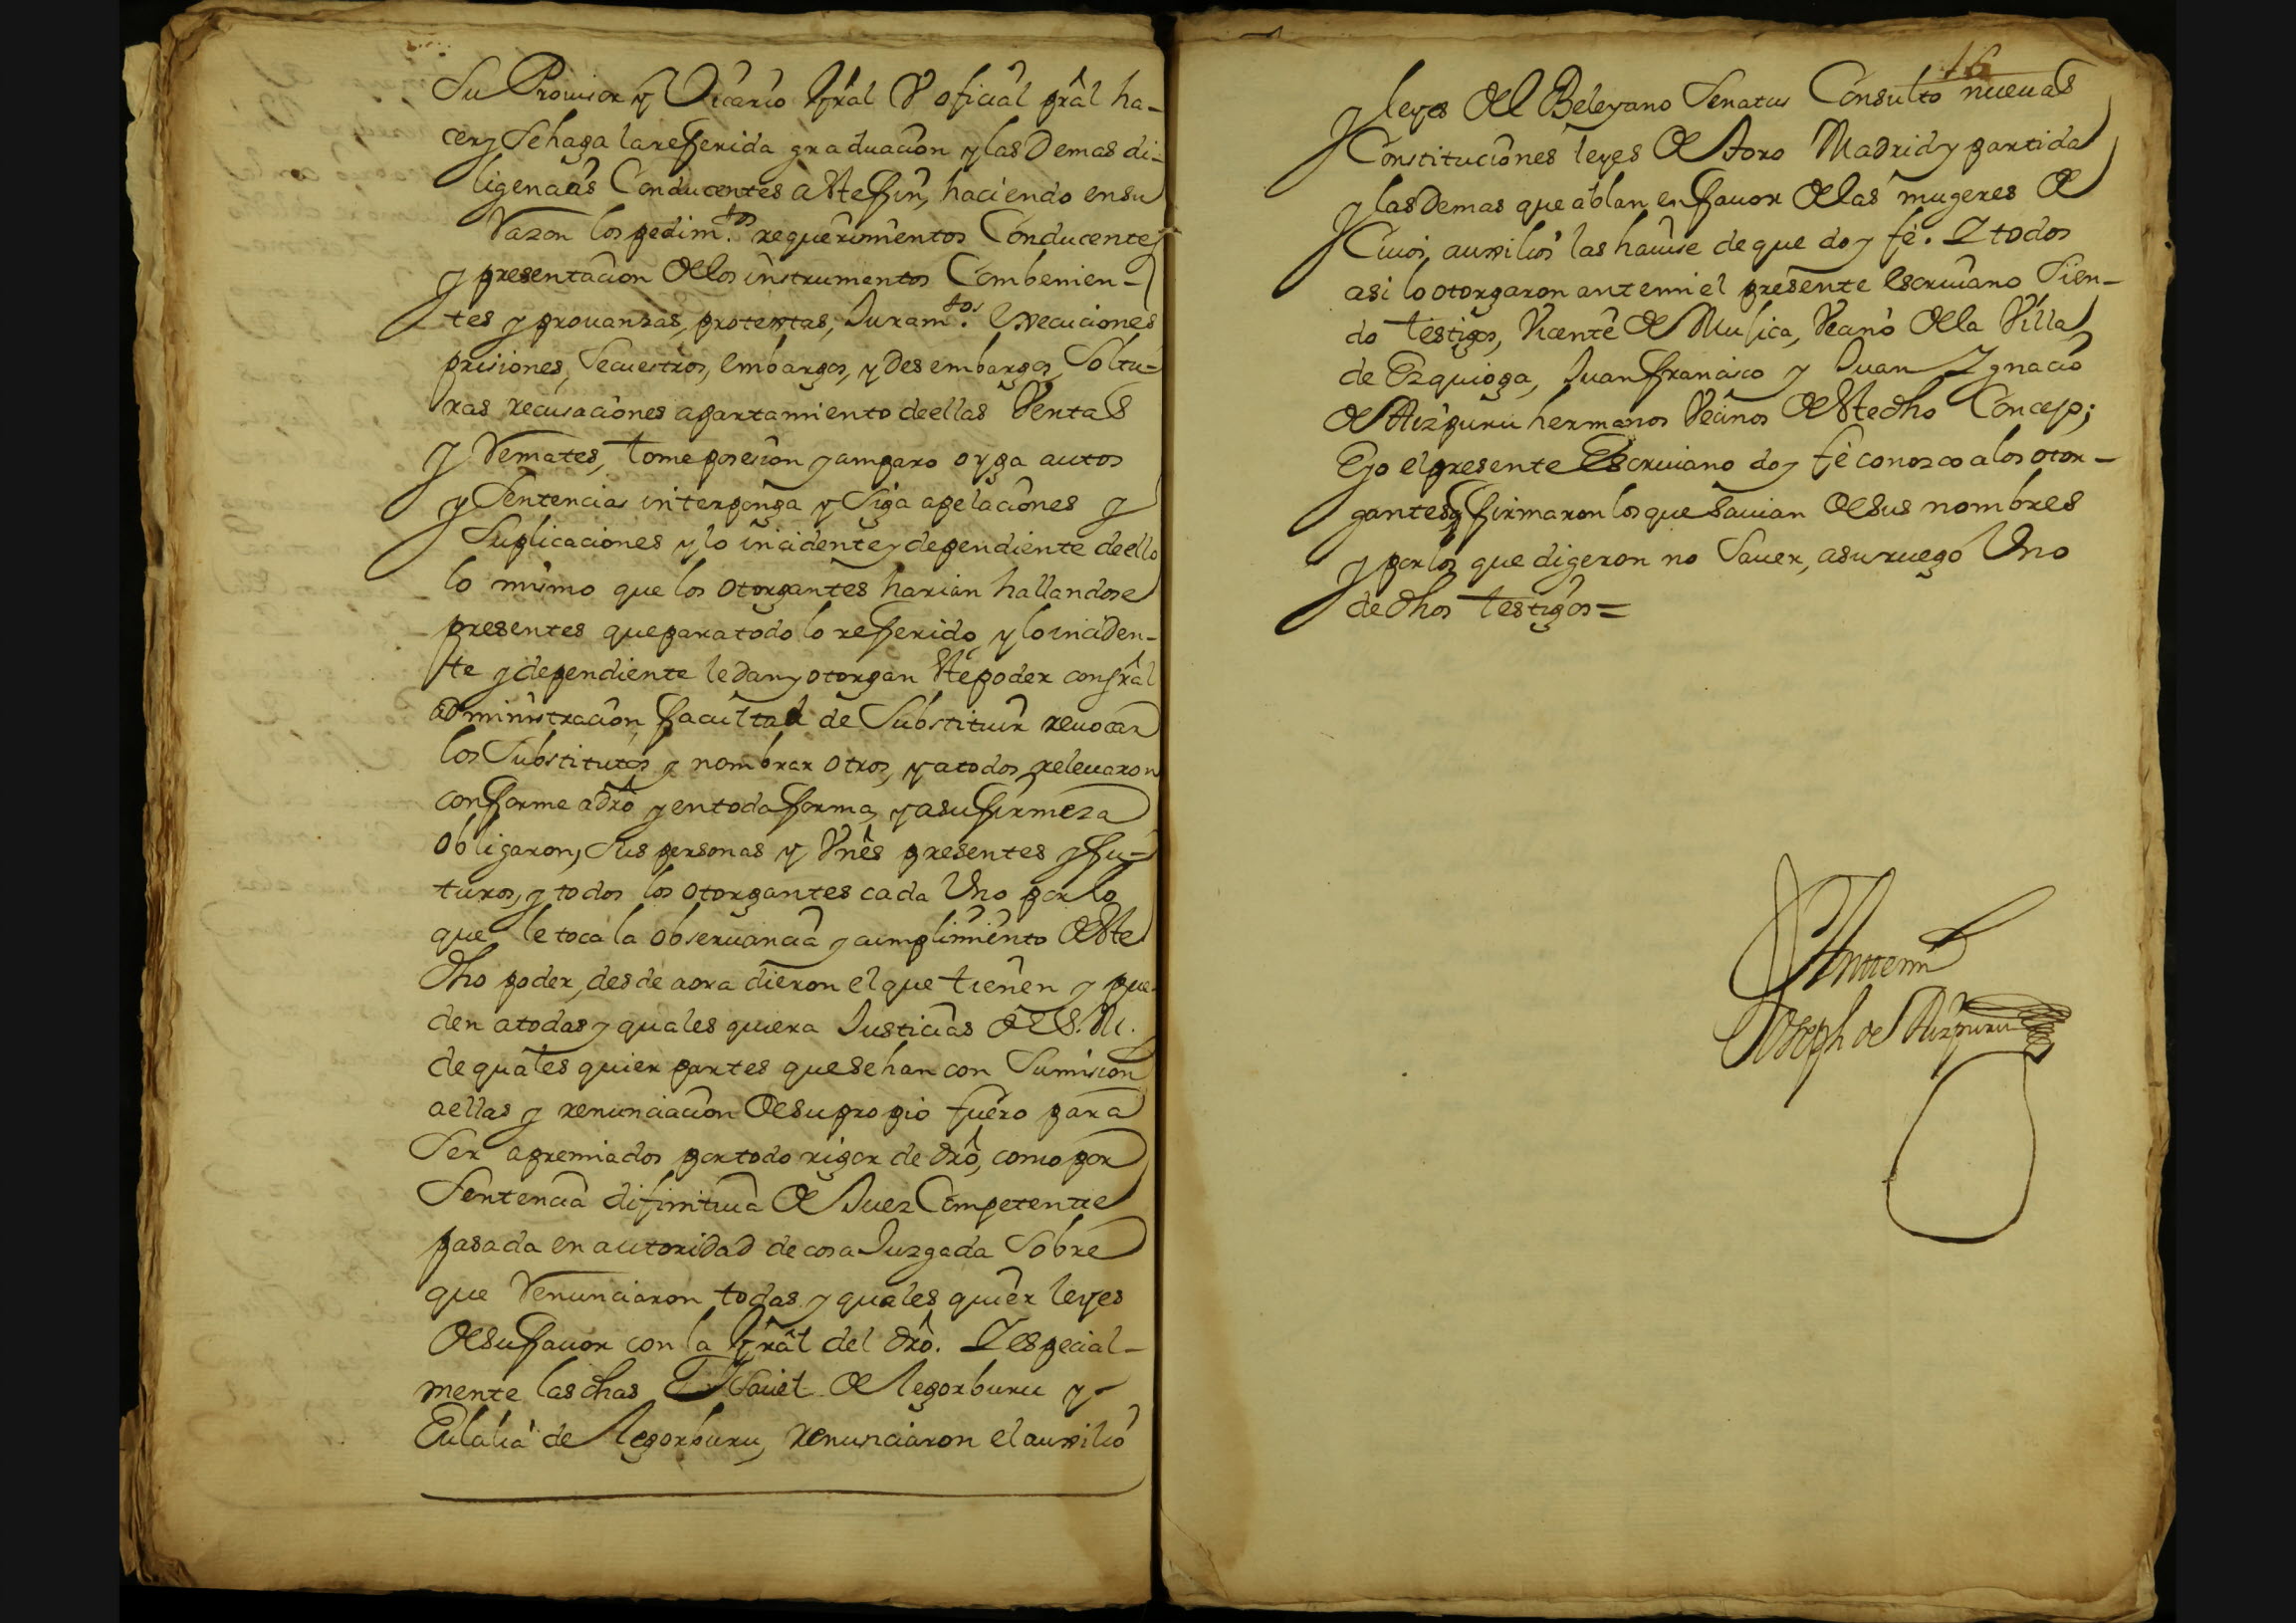 Su Provisor y Vicario Gral V oficial pral ha-
cer y Se haga la referida graduacion y las Demas di-
ligencias Conducentes a este fin, haciendo en su
Razon los pedim.tos requerimentos Conducentes
y presentacion de los instrumentos Combenien-
tes y provanzas, protestas, Juram.tos execuciones
prisiones, Secuestros, embargos, y Desembargos, Soltu-
ras recusaciones apartamiento de ellas Ventas
y Remates, tome posesion y amparo oyga autos
y Sentencias interponga y Siga apelaciones y
Suplicaciones y lo incidente y dependiente de ello
lo mismo que los otorgantes harian hallandose
presentes que para todo lo referido y lo inciden-
te y dependiente le dan y otorgan este poder con gral
administracion, facultad de Substituir revocar
los Substitutos y nombrar otros, y a todos relevaron
conforme a dro y en toda forma, y a su firmeza
obligaron, Sus personas y Vnes presentes y fu-
turos, y todos los otorgantes cada Uno por lo
que le toca la observancia y cumplimiento de este
dho poder, desde aora dieron el que tienen y pue-
den a todas y quales quiera Justicias de S. M.
de quales quier partes que Se han con Sumision
a ellas y renunciacion de su propio fuero para
Ser apremiados por todo rigor de dro, como por
Sentencia difinitiva de Juez Competente
pasada en autoridad de cosa Juzgada Sobre
que Renunciaron todas y quales quier leyes
de su favor con la gral del dro. Y especial-
mente las dhas Isavel de legorburu y
Eulalia de legorburu, renunciaron el auxilio
16
y leyes del Beleyano Senatus Consulto nuevas
Constituciones leyes de toro Madrid y partida
y las Demas que ablan en favor de las mugeres de
Cuios auxilios las havise de que doy fé. Y todos
asi lo otorgaron ante mi el presente escrivano Sien-
do testigos, Vicente de Mujica, Vecino de la Villa
de Ezquioga, Juan Francisco y Juan Ygnacio
de Aizpuru hermanos Vecinos de este dho Concejo;
E yo el presente Escrivano doy fé conosco a los otor-
gantes y firmaron los que Savian de sus nombres
y por los que digeron no Saver, a su ruego Uno
de dhos testigos=
Ante mi
Joseph de Aizpuru